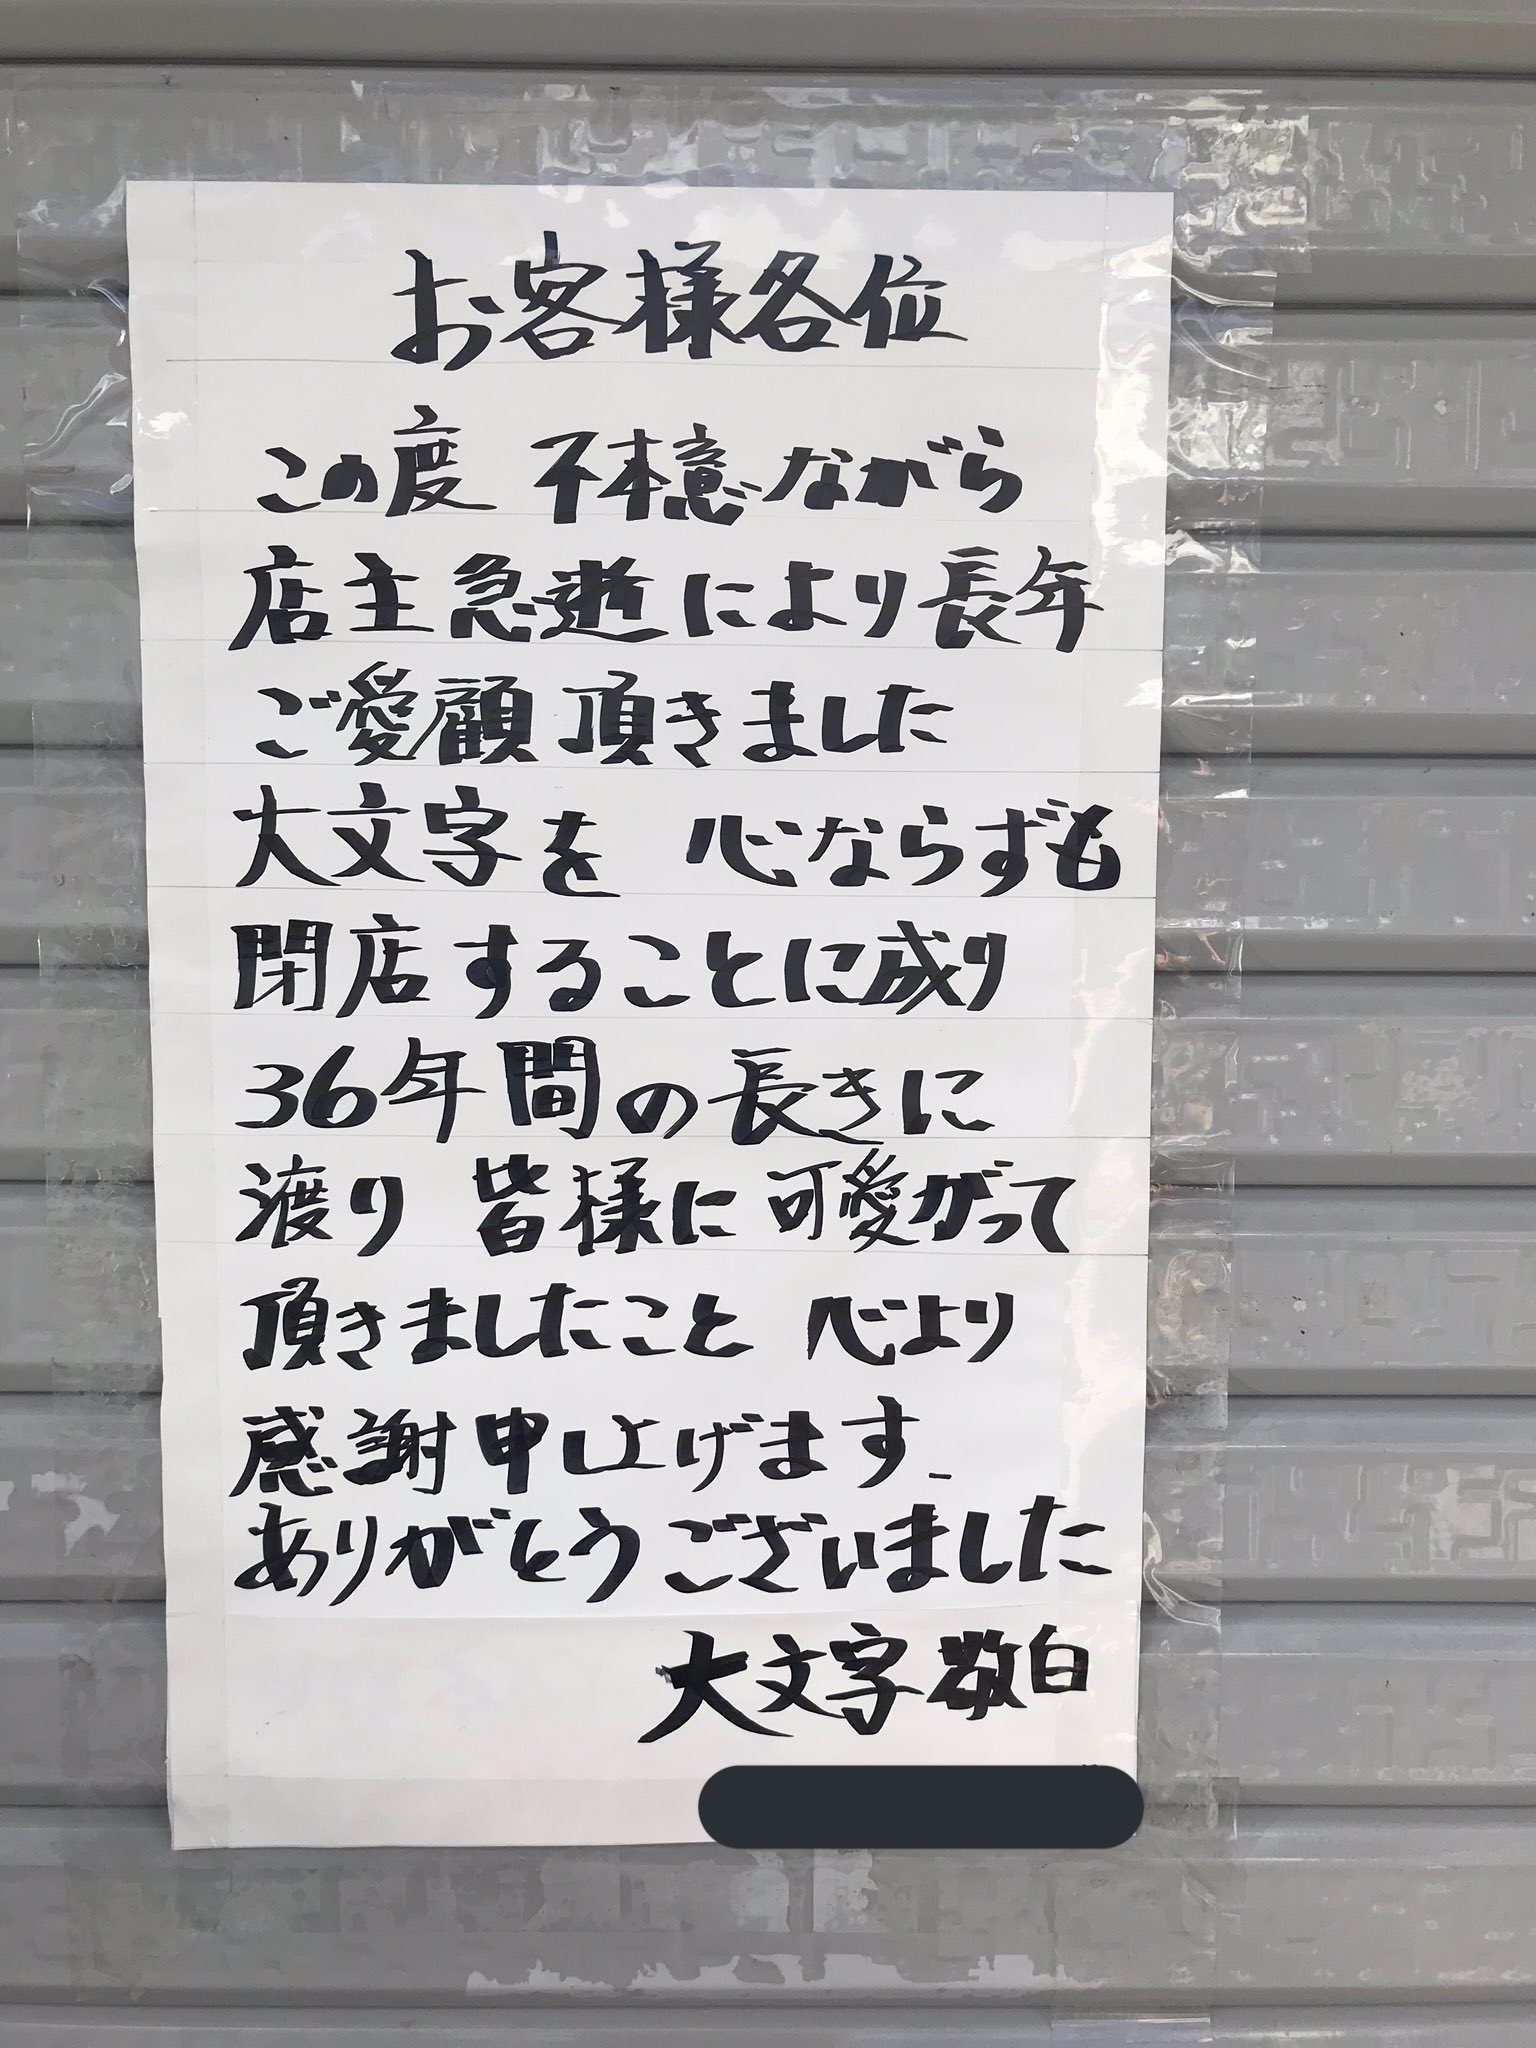 お客様各位
この度 不本意ながら
店主急逝により長年
ご愛顧頂きました
大文字を 心ならずも
閉店することに成り
36年間の長きに
渡り 皆様に可愛がって
頂きましたこと 心より
感謝申し上げます。
ありがとうございました
大文字 敬白